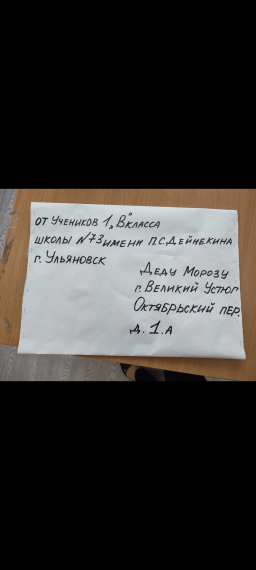 от Учеников 1 „В" класса
школы №73 имени П.С.Дейнекина
г. Ульяновск
Деду Морозу
г. Великий Устюг
Октябрьский пер.
д. 1. А